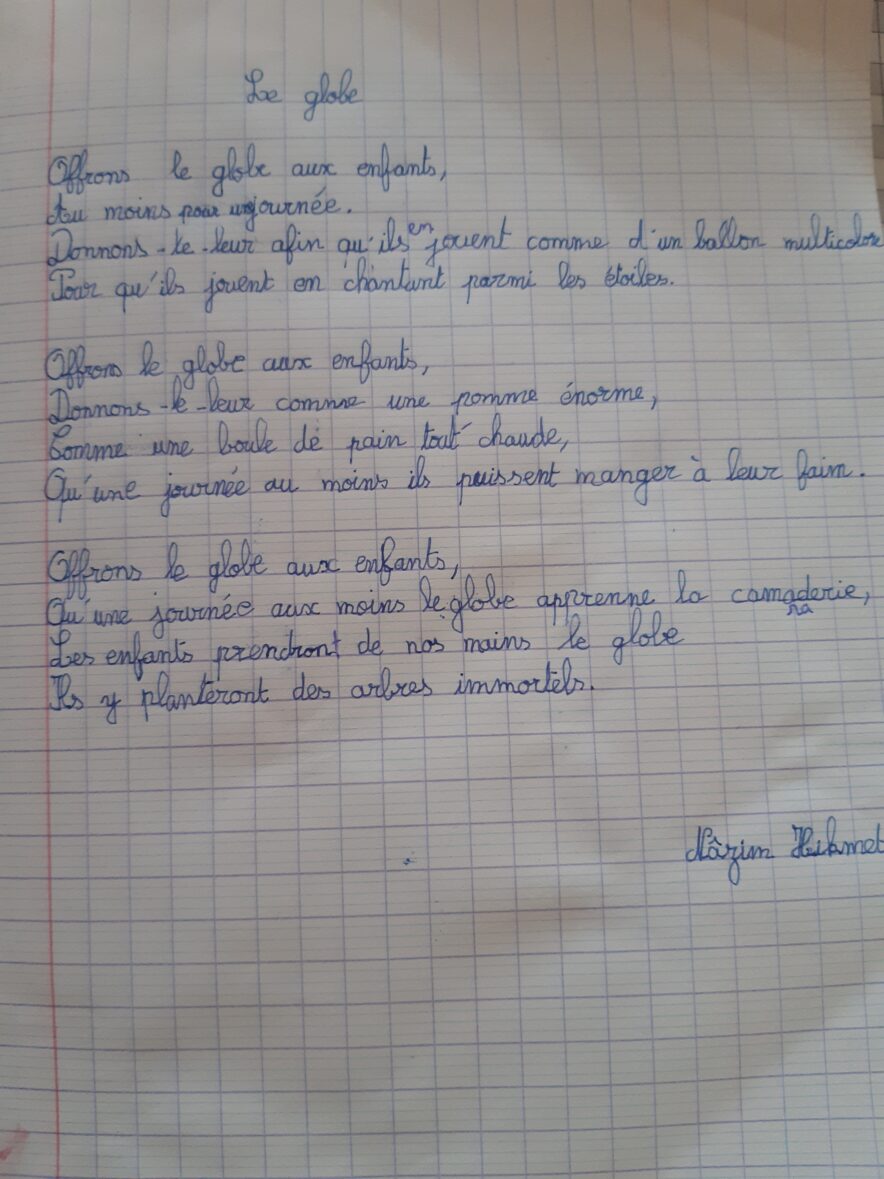 Le globe
Offrons le globe aux enfants,
Au moins pour un journée.
Donnons-le-leur afin qu'ils en jouent comme d'un ballon multicolore
Pour qu'ils jouent en chantant parmi les étoiles.
Offrons le globe aux enfants,
Donnons-le-leur comme une pomme énorme,
Comme une boule de pain tout chaude,
Qu'une journée au moins ils puissent manger à leur faim.
Offrons le globe aux enfants,
Qu'une journée aux moins le globe apprenne la camaderie,
ra
Les enfants prendront de nos mains le globe
Ils y planteront des arbres immortels.
Nâzim Hikmet